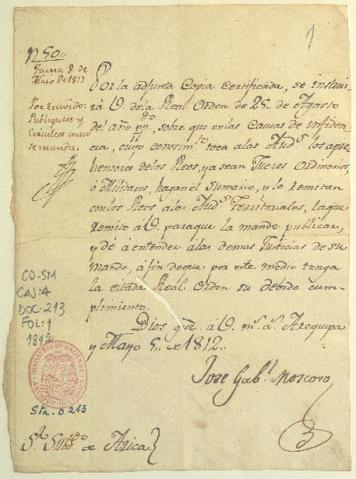 1
N. 50.
Tacna 8. de
Mayo de 1812
Por recivido:
Publiquese y
Circulese como
se manda.
Por la adjunta Copia Certificada, se instrui-
rá V. de la Real Orden de 25. de Agosto
del año pp.do, sobre que en las Causas de infiden-
cia, cuyo conosim.to toca a las Aud.s los apre-
hensores de los Reos, ya sean Jueces Ordinarios,
ó Militares, hagan el Sumario, y lo remitan
con los Reos a las Aud.s Territoriales, la que
remito á V. para que la mande publicar,
y dé á entender á las demas Justicias de su
mando, á fin de que por este medio tenga
la citada Real Orden su debido cum-
plimiento.
Dios gue. á V. m.s a.s Arequipa
y Mayo 5. de 1812.
Jose Gab.l Moscoso
S.r Sub.do de Arica
CO-SM
CAJ: 4
DOC: 213
FOL: 1
1812
MINISTERIO DE HACIENDA
Sta. 0213